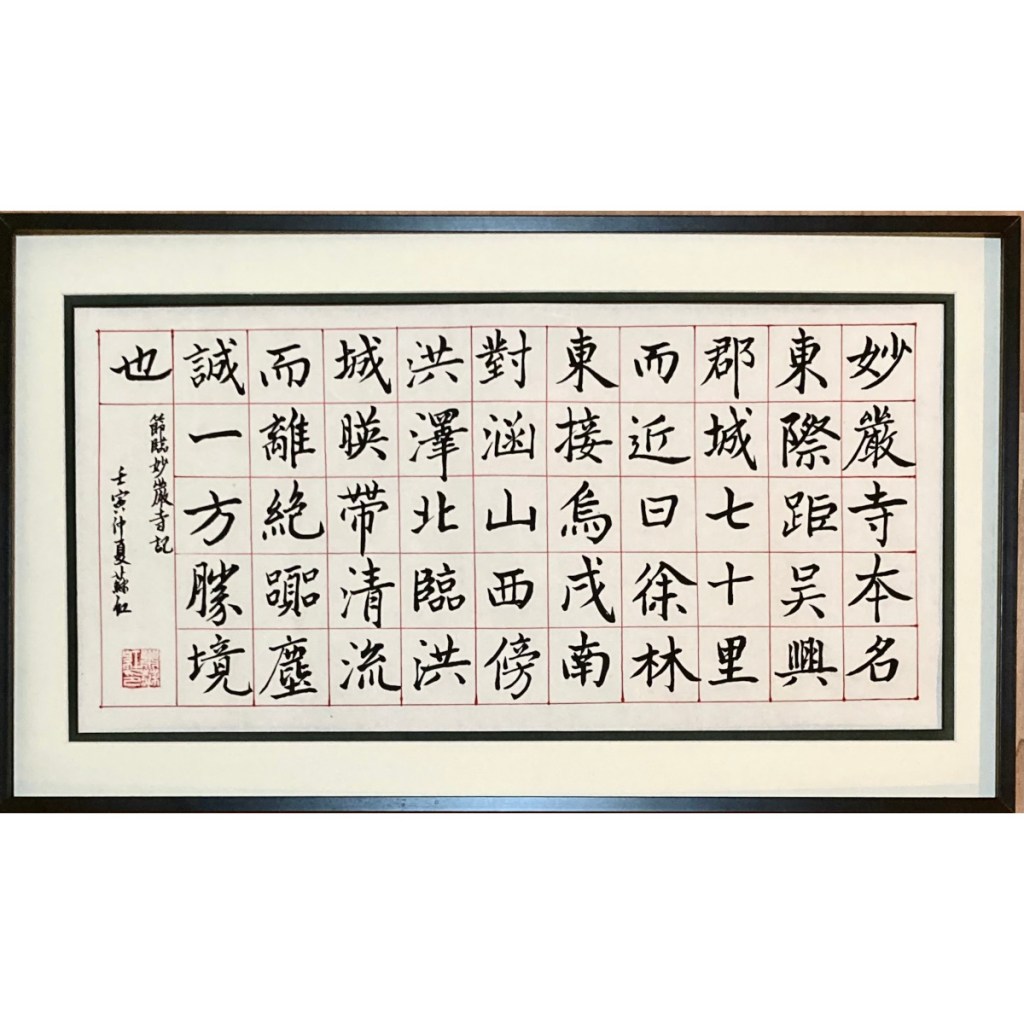 妙嚴寺本名
東際距吴興
郡城七十里
而近曰徐林
東接烏戍南
對涵山西傍
洪澤北臨洪
城暎帶清流
而離絕囂塵
誠一方勝境
也
節臨妙嚴寺記
壬寅仲夏蘇紅